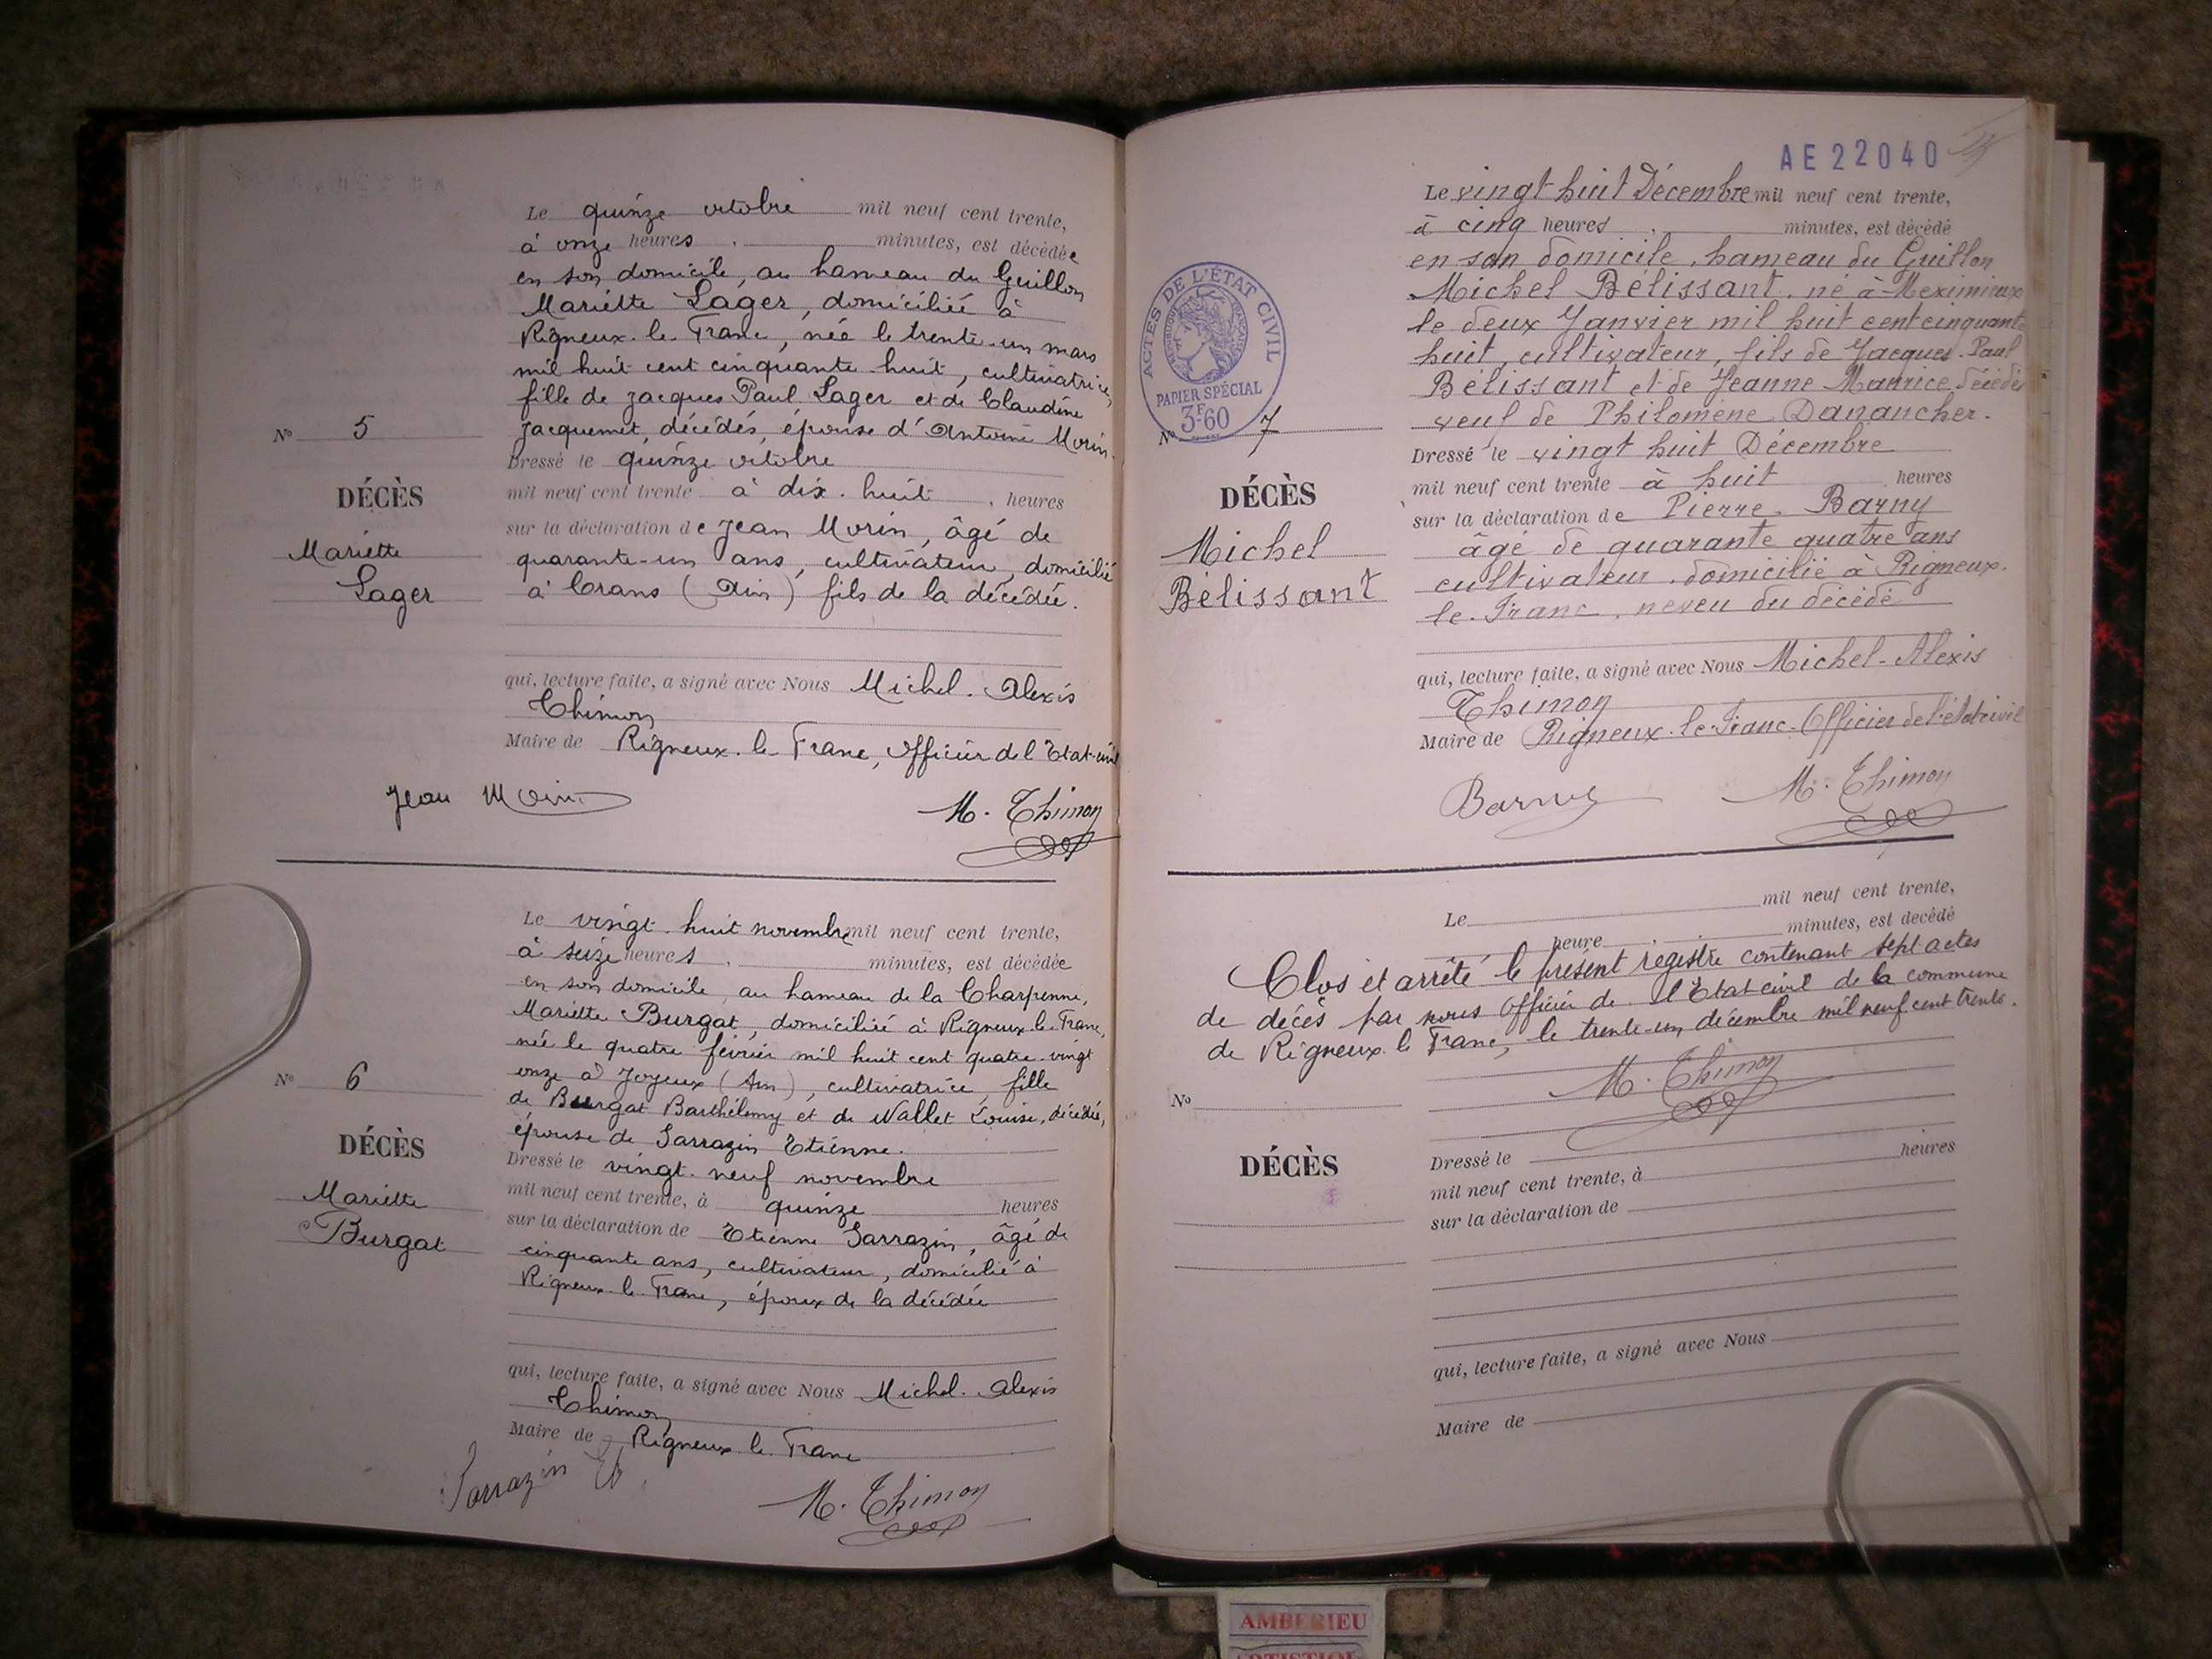 Le quinze octobre mil neuf cent trente,
à onze heures minutes, est décédée
en son domicile, au hameau du Guillon
Mariette Lager, domiciliée à
Rigneux-le-Franc, née le trente-un mars
mil huit cent cinquante-huit, cultivatrice,
fille de Jacques Paul Lager et de Claudine
Jacquemet, décédés, épouse d'Antoine Morin.
Nº 5
Dressé le quinze octobre
mil neuf cent trente à dix-huit heures
DÉCÈS
sur la déclaration de Jean Morin, âgé de
Mariette
quarante-un ans, cultivateur, domicilié
Lager
à Crans (Ain) fils de la décédée.
qui, lecture faite, a signé avec Nous Michel-Alexis
Thimon
Maire de Rigneux-le-Franc, Officier de l'Etat-civil
Jean Morin
M. Thimon
Le vingt-huit novembre mil neuf cent trente,
à seize heures minutes, est décédée
en son domicile, au hameau de la Charpenne,
Mariette Burgat, domiciliée à Rigneux-le-Franc,
née le quatre février mil huit cent quatre-vingt
onze à Joyeux (Ain), cultivatrice, fille
Nº 6
de Burgat Barthélemy et de Wallet Louise, décédés,
épouse de Sarrazin Etienne.
DÉCÈS
Dressé le vingt-neuf novembre
mil neuf cent trente, à quinze heures
Mariette
sur la déclaration de Etienne Sarrazin, âgé de
Burgat
cinquante ans, cultivateur, domicilié à
Rigneux-le-Franc, époux de la décédée
qui, lecture faite, a signé avec Nous Michel-Alexis
Thimon
Maire de Rigneux-le-Franc
Sarrazin Et
M. Thimon
AE22040
Le vingt-huit Décembre mil neuf cent trente,
à cinq heures minutes, est décédé
en son domicile, hameau du Guillon
Michel Bélissant, né à Meximieux
le deux Janvier mil huit cent cinquante
huit, cultivateur, fils de Jacques-Paul
Bélissant et de Jeanne Maurice, décédés
veuf de Philomène Danancher.
ACTES DE L'ÉTAT CIVIL
PAPIER SPÉCIAL
3F60
Nº 7
Dressé le vingt huit Décembre
mil neuf cent trente à huit heures
DÉCÈS
sur la déclaration de Pierre Barny
Michel
âgé de quarante quatre ans
Bélissant
cultivateur, domicilié à Rigneux-
le-Franc, neveu du décédé
qui, lecture faite, a signé avec Nous Michel-Alexis
Thimon
Maire de Rigneux-le-Franc-Officier de l'état civil
Barny
M. Thimon
Le mil neuf cent trente,
heure minutes, est décédé
Clos et arrêté le présent registre contenant sept actes
de décès par nous Officier de l'Etat civil de la commune
de Rigneux-le Franc, le trente-un décembre mil neuf cent trente.
M. Thimon
Nº
DÉCÈS
Dressé le
mil neuf cent trente, à heures
sur la déclaration de
qui, lecture faite, a signé avec Nous
Maire de
AMBERIEU